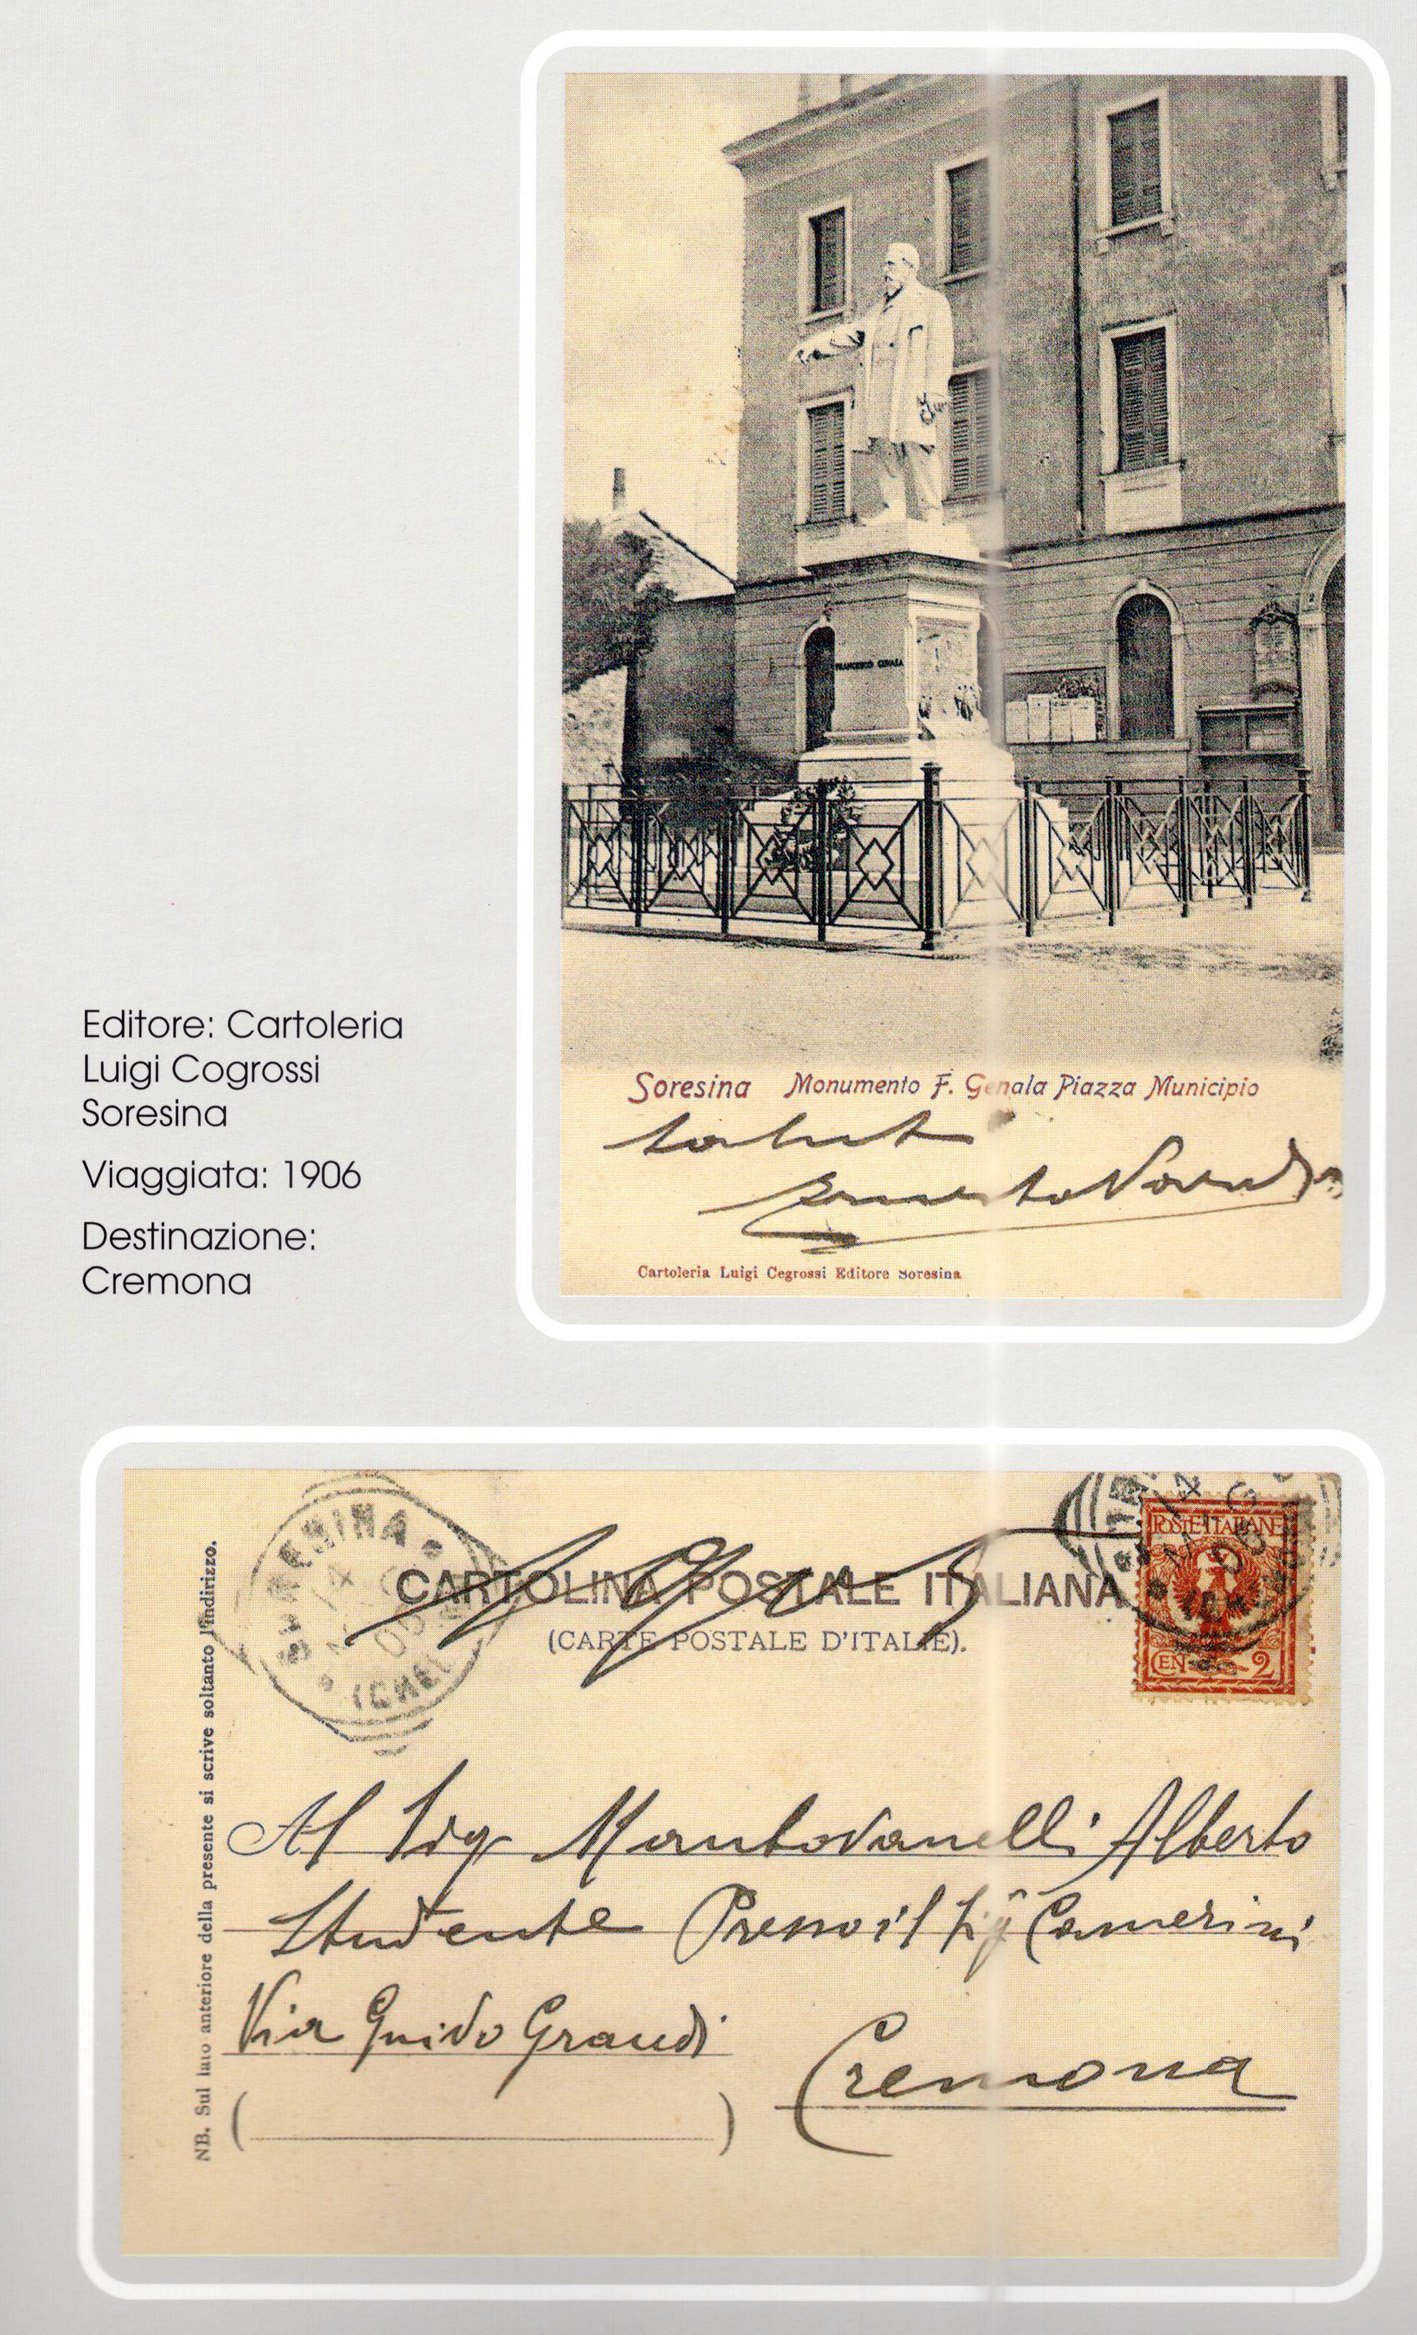 FRANCESCO GENALA
Soresina Monumento F. Genala Piazza Municipio
Saluti
Ernesto
Cartoleria Luigi Cegrossi Editore Soresina
Editore: Cartoleria
Luigi Cogrossi
Soresina
Viaggiata: 1906
Destinazione:
Cremona
SORESINA
CARTOLINA POSTALE ITALIANA
(CARTE POSTALE D'ITALIE).
POSTE ITALIANE
CEN 2
NB. Sul lato anteriore della presente si scrive soltanto l'indirizzo.
Al Sig Mantovanelli Alberto
Studente Presso il Sig Camerini
Via Guido Grandi
Cremona